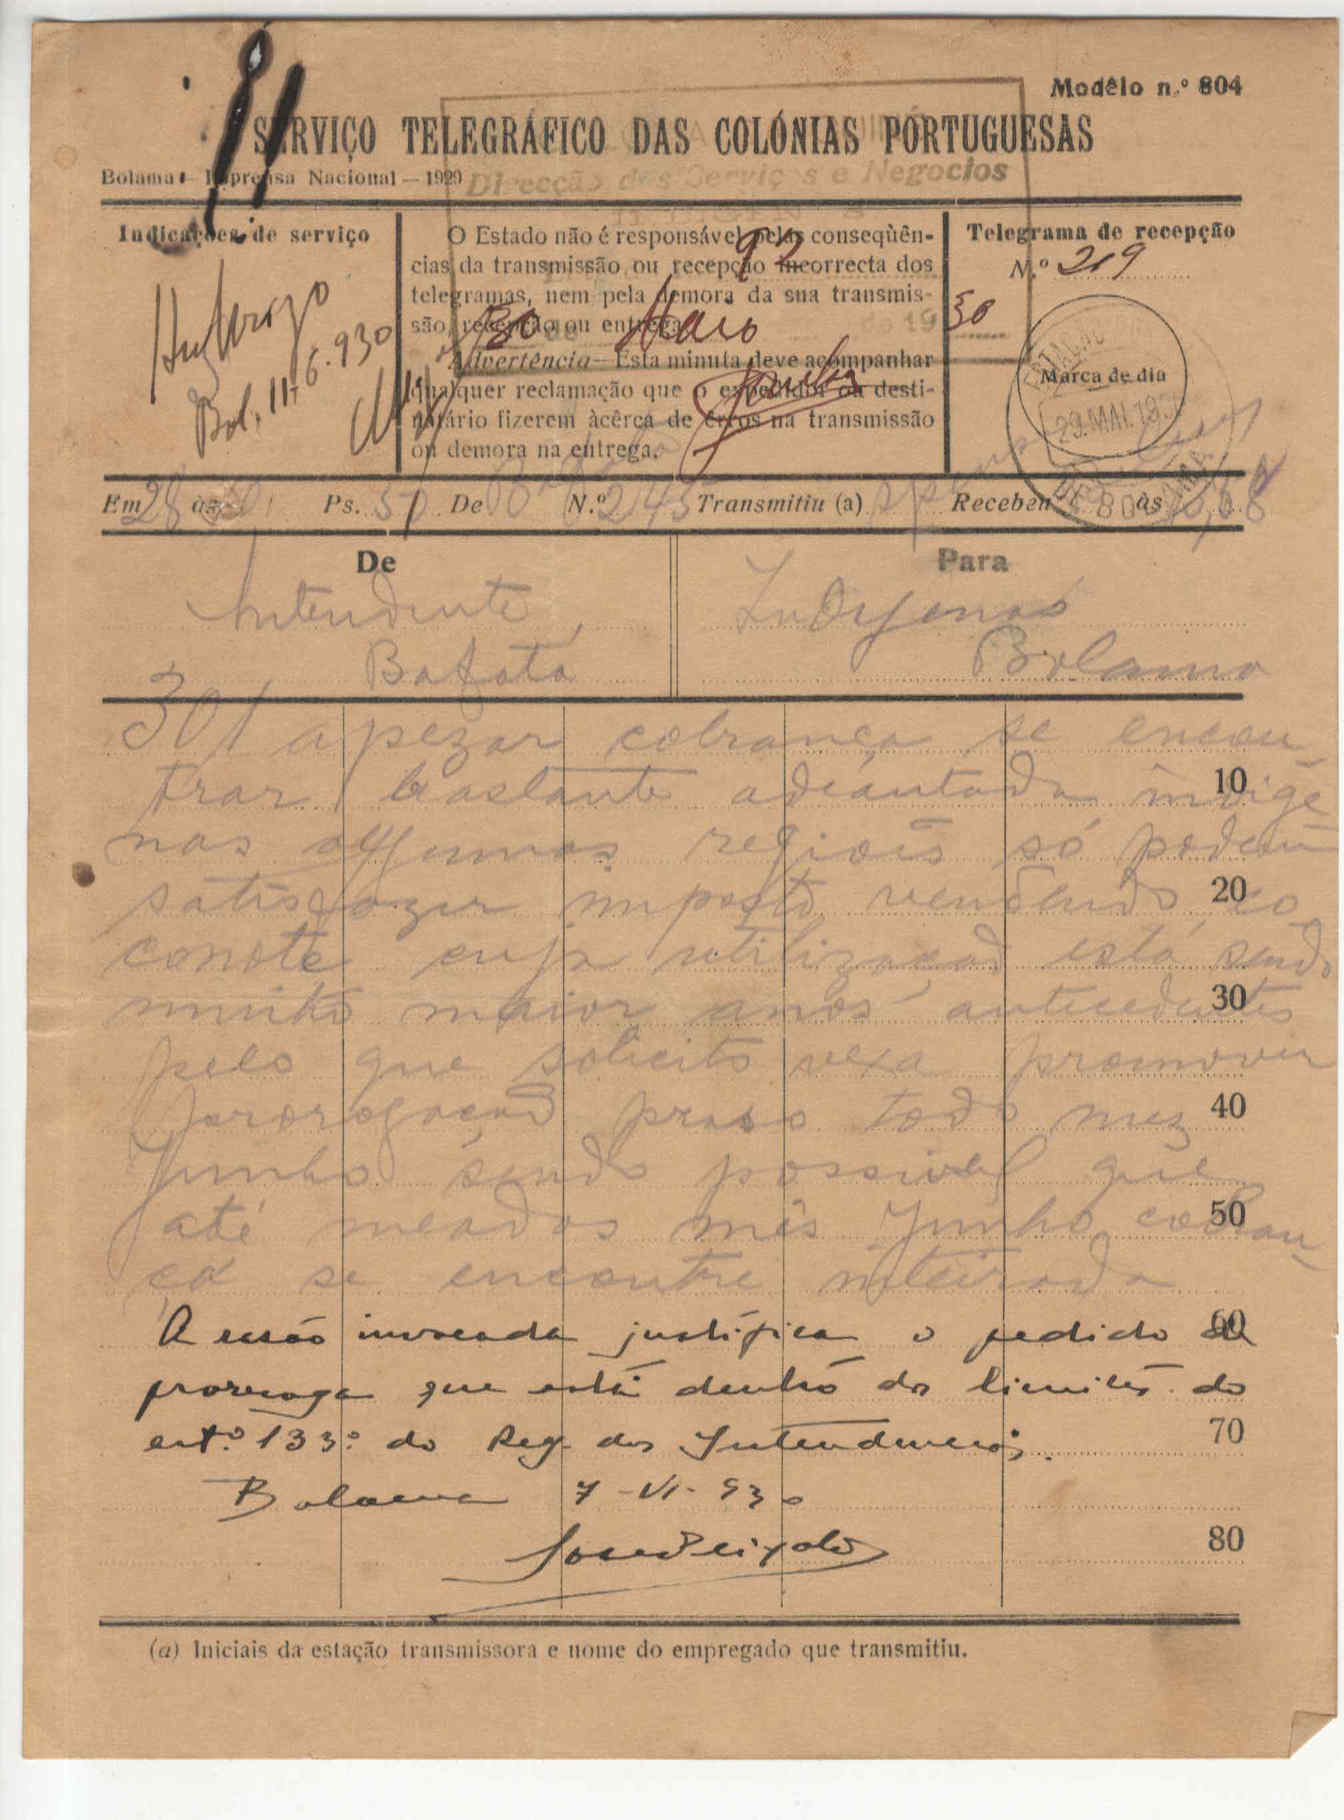 Modêlo n.º 804
SERVIÇO TELEGRÁFICO DAS COLÓNIAS PORTUGUESAS
Bolama — Imprensa Nacional — 1929
Direcção dos Serviços e Negocios
Indicações de serviço
Autorizo
Bol. 11-6.930
O Estado não é responsável pelas conseqùên-
cias da transmissão ou recepção incorrecta dos
telegramas, nem pela demora da sua transmis-
são, recepção ou entrega.
Advertência — Esta minuta deve acompanhar
qualquer reclamação que o expedidor ou desti-
natário fizerem àcêrca de erros na transmissão
ou demora na entrega.
92
30 de Maio de 1930
Telegrama de recepção
N.º 219
Marca de dia
29.MAI.193
Em 28 às Ps. 50/ De Bafata N.º 245 Transmitiu (a) Recebeu às
De
Para
Intendente
Bafata
Indygenas
Bolama
301 apezar cobrança se encon
trar bastante adeantada indige
nas algumas regiões só podem
satisfazer imposto vendendo co
conote cuja utilização está sendo
muito maior anos antecedentes
pelo que solicito vexa promover
prorogação praso todo mez
Junho sendo possivel que
até meados mês Junho cobran
ça se encontre inteirada
10
20
30
40
50
60
70
80
A razão invocada justifica o pedido de
prorroga que está dentro dos limites do
art.º 133.º do Reg. das Intendencias.
Bolama 7-VI-930
(a) Iniciais da estação transmissora e nome do empregado que transmitiu.